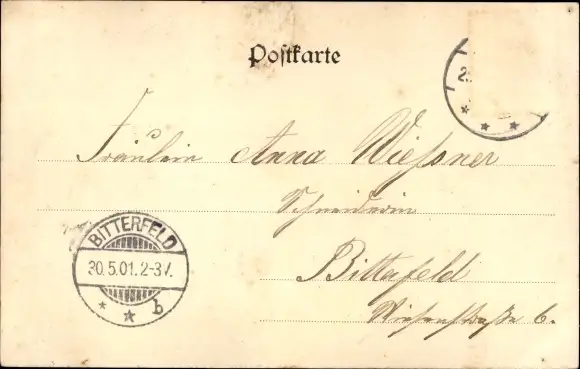 Postkarte
2
Fräulein Anna Wießner
Schneiderin
Bitterfeld
Wiesenstraße 6.
BITTERFELD
30.5.01.2-3V.
* * b
* * *